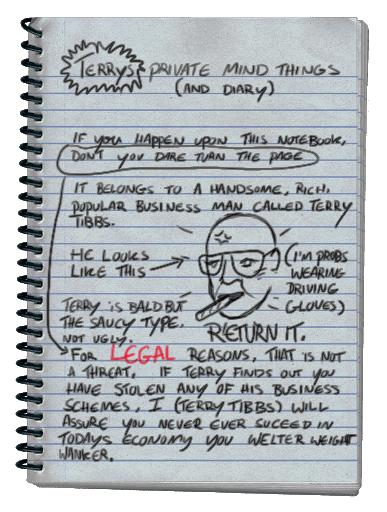 TERRYS PRIVATE MIND THINGS
(AND DIARY)
IF YOU HAPPEN UPON THIS NOTEBOOK,
DON'T YOU DARE TURN THE PAGE
IT BELONGS TO A HANDSOME, RICH,
POPULAR BUSINESS MAN CALLED TERRY
TIBBS.
HE LOOKS
LIKE THIS
(I'M PROBS
WEARING
DRIVING
GLOVES)
TERRY IS BALD BUT
THE SAUCY TYPE.
NOT UGLY.
RETURN IT.
FOR LEGAL REASONS, THAT IS NOT
A THREAT. IF TERRY FINDS OUT YOU
HAVE STOLEN ANY OF HIS BUSINESS
SCHEMES, I (TERRY TIBBS) WILL
ASSURE YOU NEVER EVER SUCEED IN
TODAYS ECONOMY YOU WELTER WEIGHT
WANKER.